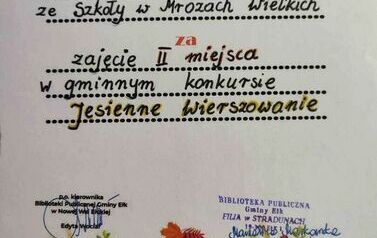 ze Szkoły w Mrozach Wielkich
za
zajęcie II miejsca
w gminnym konkursie
Jesienne Wierszowanie
p.o. kierownika
Biblioteki Publicznej Gminy Ełk
w Nowej Wsi Ełckiej
Edyta
BIBLIOTEKA PUBLICZNA
Gminy Ełk
FILIA w STRADUNACH